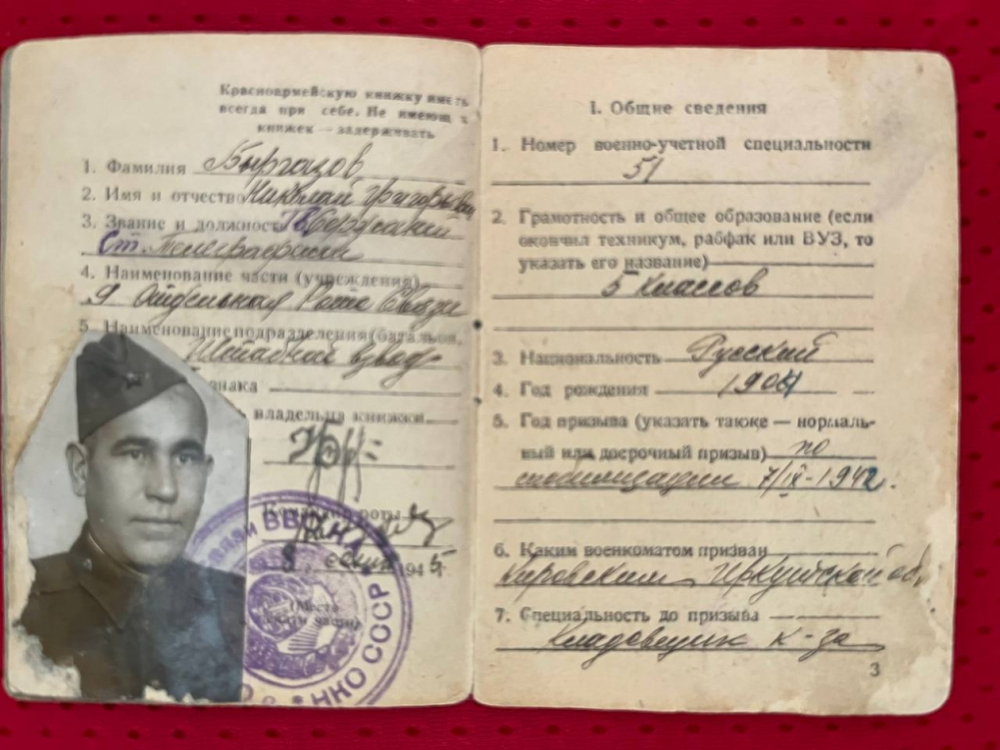 Красноармейскую книжку иметь
всегда при себе. Не имеющ х
книжек — задерживать
1. Фамилия
2. Имя и отчество Николай Григорьевич
3. Звание и должность Гв Сержант
Ст. Телеграфист
4. Наименование части (учреждения)
9 Отдельная Рота Связи
5. Наименование подразделения (батальон,
Штабной взвод
знака
владельца книжки
Командир роты
8 1945
(Место
НКО СССР
I. Общие сведения
1. Номер военно-учетной специальности
51
2. Грамотность и общее образование (если
окончил техникум, рабфак или ВУЗ, то
указать его название)
5 классов
3. Национальность Русский
4. Год рождения 1904
5. Год призыва (указать также — нормаль-
ный или досрочный призыв) по
мобилизации 7/IX-1942.
6. Каким военкоматом призван
Кировским Иркутской об.
7. Специальность до призыва
Кладовщик к-за
3